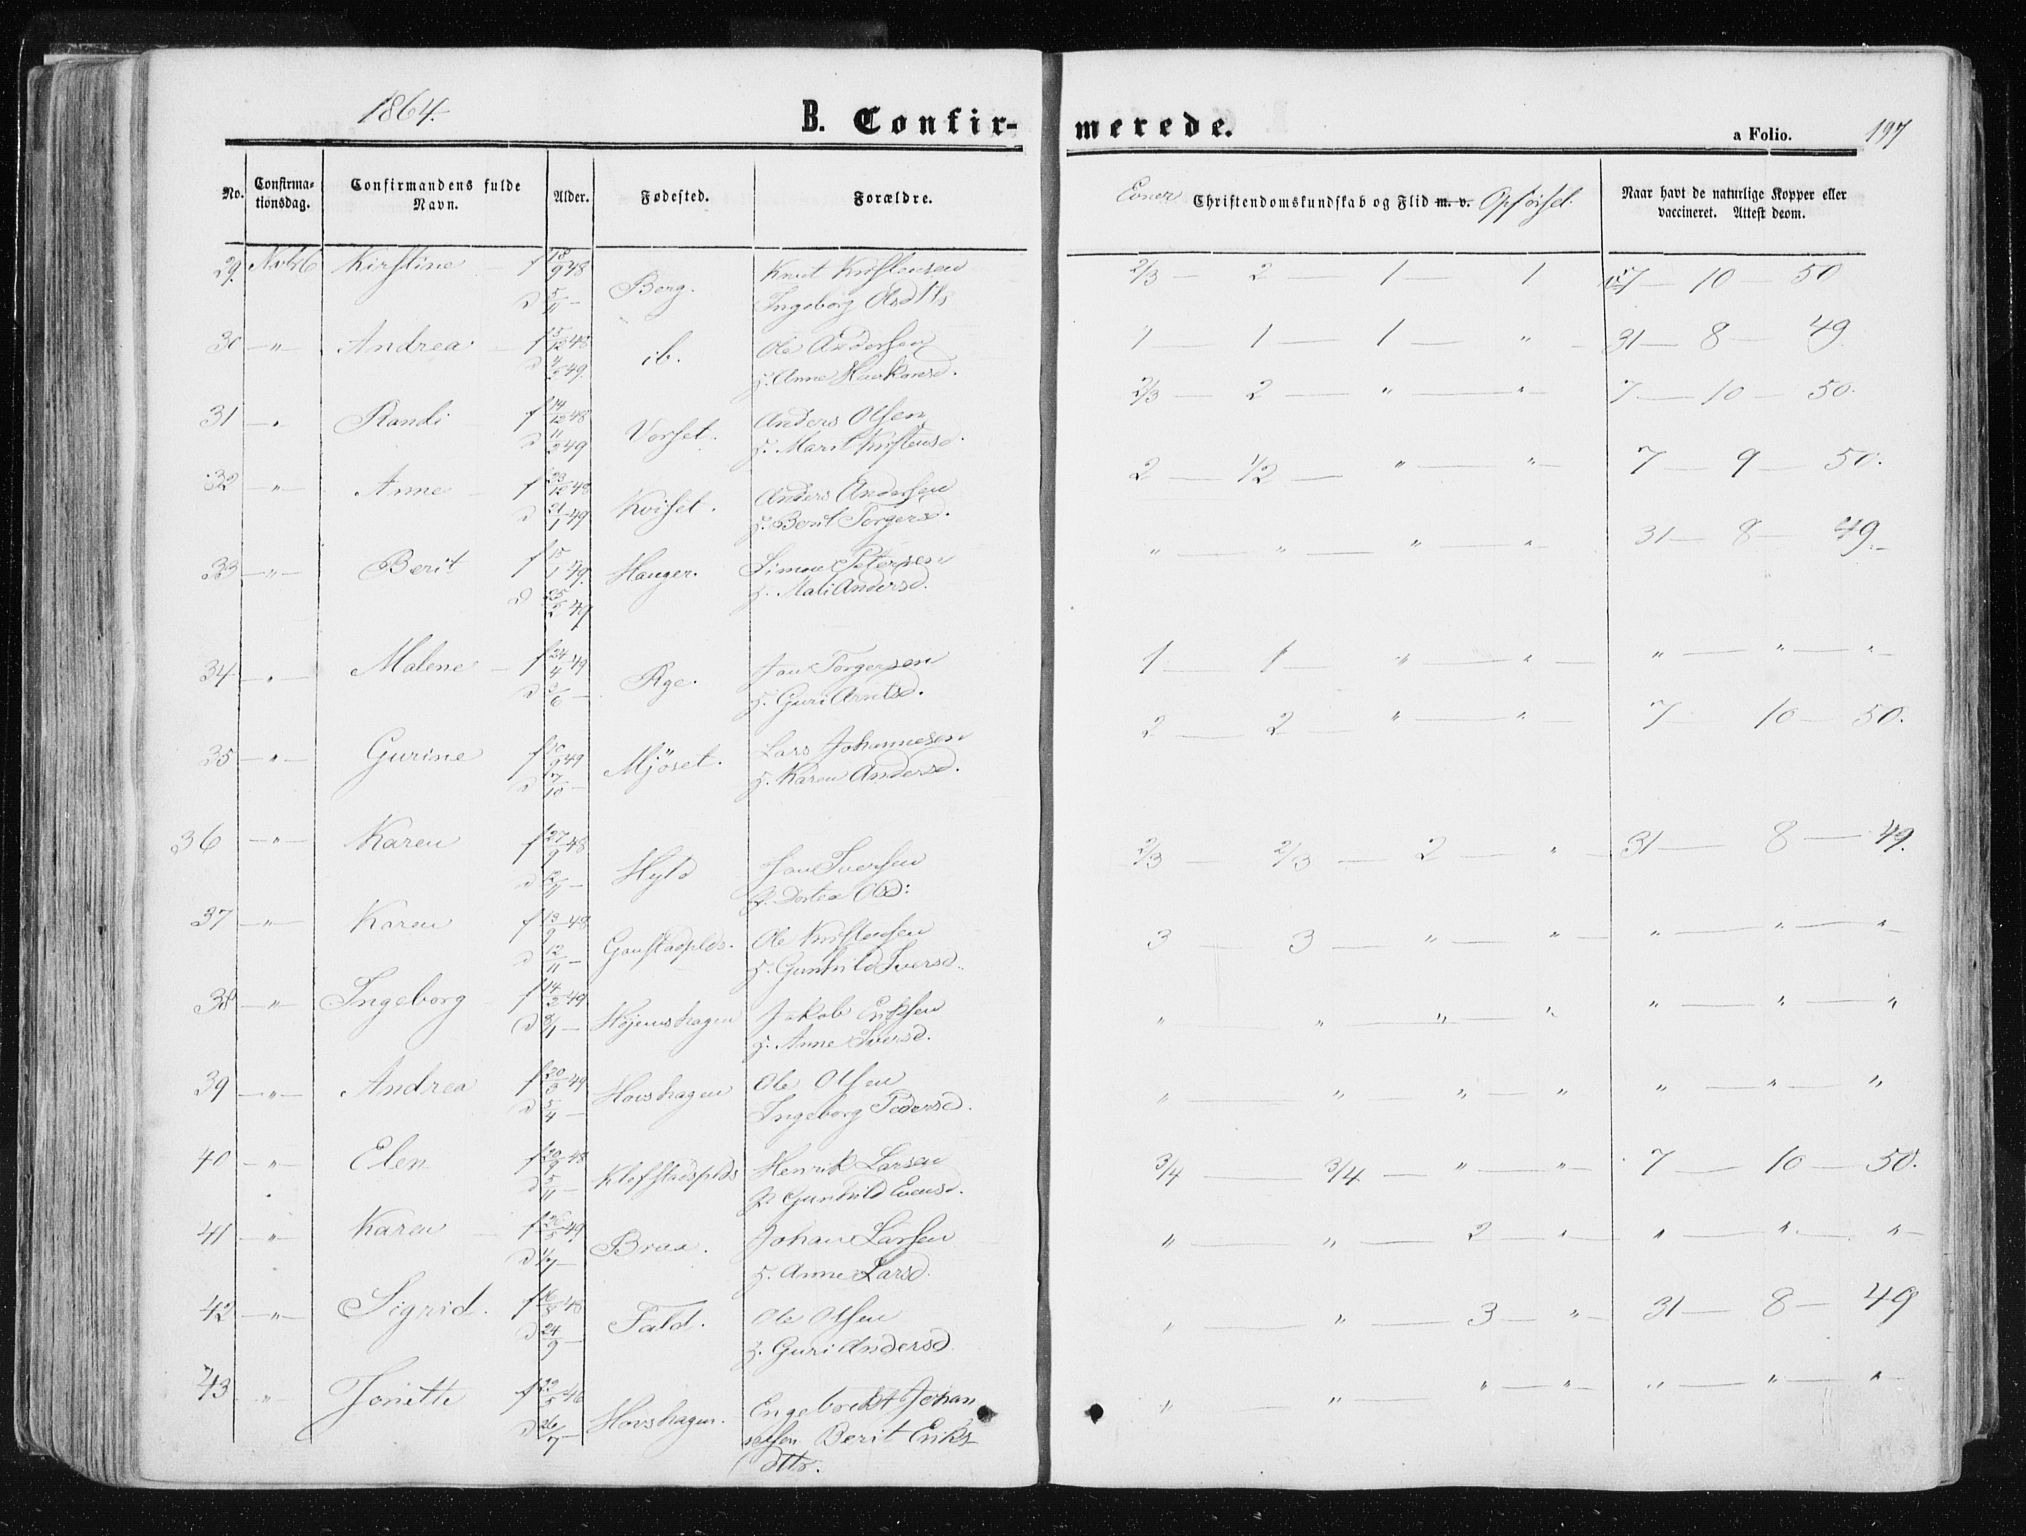 1864.
B. Confir- merede.
a Folio. 197
No. Confirma-tionsdag. Confirmandens fulde Navn. Alder. Fødested. Forældre. Evner Christendomskundskab og Flid m. v. Opførsel. Naar havt de naturlige Kopper eller vaccineret. Attest derom.
29. Kirstine f 18/9 48 Knut Kristensen 2/3 — 2 — 1 — 1 7 — 10 — 50
d 5/11 — Berg. Ingeborg Olsdttr
30 — " — Andrea — f 5/12 48 Ole Andersen 1 — 1 — 1 — " — 31 — 8 — 49
d 49. ib. H. Anne Haakansd.
31 — " Randi — f 14/12 48 Anders Olsen 2/3 — 2 — " — " 7 — 10 — 50.
d 11/2 49 Vorset. H. Marit Kristensd.
32 — " — Anne — f 23/12 48 Anders Andersen 2 — 1/2 — " — " — 7 — 9 — 50.
d 21/1 49 Kviset. H. Berit Torgersd.
33 — " — Berit f 15/1 49. Hauger. Simon Petersen " — " — " — " 31 — 8 — 49.
d 25/2 49 H. Mali Andersd.
34 — " — Malene — f 24/4 49 Jon Torgersen 1 — 1 — " — " — " — " — "
d 3/6 — Rge. H. Guri Arntsd.
35 — " — Gurine f 10/9 49 Lars Johannesen 2 — 2 — " — " — 7 — 10 — 50.
d 7/10 — Mjöset. H. Karen Andersd.
36 — " — Karen f 27/9 48 Jon Iversen 2/3 — 2/3 — 2 — " — 31 — 8 — 49.
d /11 — Hyld Dortea Olsd:
37 — " — Karen f 13/9 48 Ole Kristensen 3 — 3 — " — " " — " — "
d 12/11 — Gaustadplds. H. Gunhild Iversd.
38 — " — Ingeborg — f 14/2 49 Jakob Eriksen " — " — " — " " — " — "
d — Höjemshagen H. Anne Iversd.
39 — " — Andrea f 20/3 49 Ole Olsen " — " — " — " " — " — "
d 5/4 — Hovshagen Ingeborg Pedersd.
40 — " — Elen f 20/9 48 Henrik Larsen 3/4 — 3/4 — " — " — 7 — 10 — 50.
d 5/11 — Klefstadplds Gunhild Evensd.
41 — " — Karen — f 26/5 49 Johan Larsen " — " — 2 — " " — " — "
d 1/7 — Braa. H. Anne Larsd.
42 — " — Sigrid. f 16/8 48 Ole Olsen " — " — 3 — " — 31 — 8 — 49
d 24/9 — Fald. H. Guri Andersd.
43 " Jonette f 29/5 46 Engebrekt Johan " — " — " — " — " — " — "
d 26/7 — Hovshagen. sen Berit Eriks
dttr.